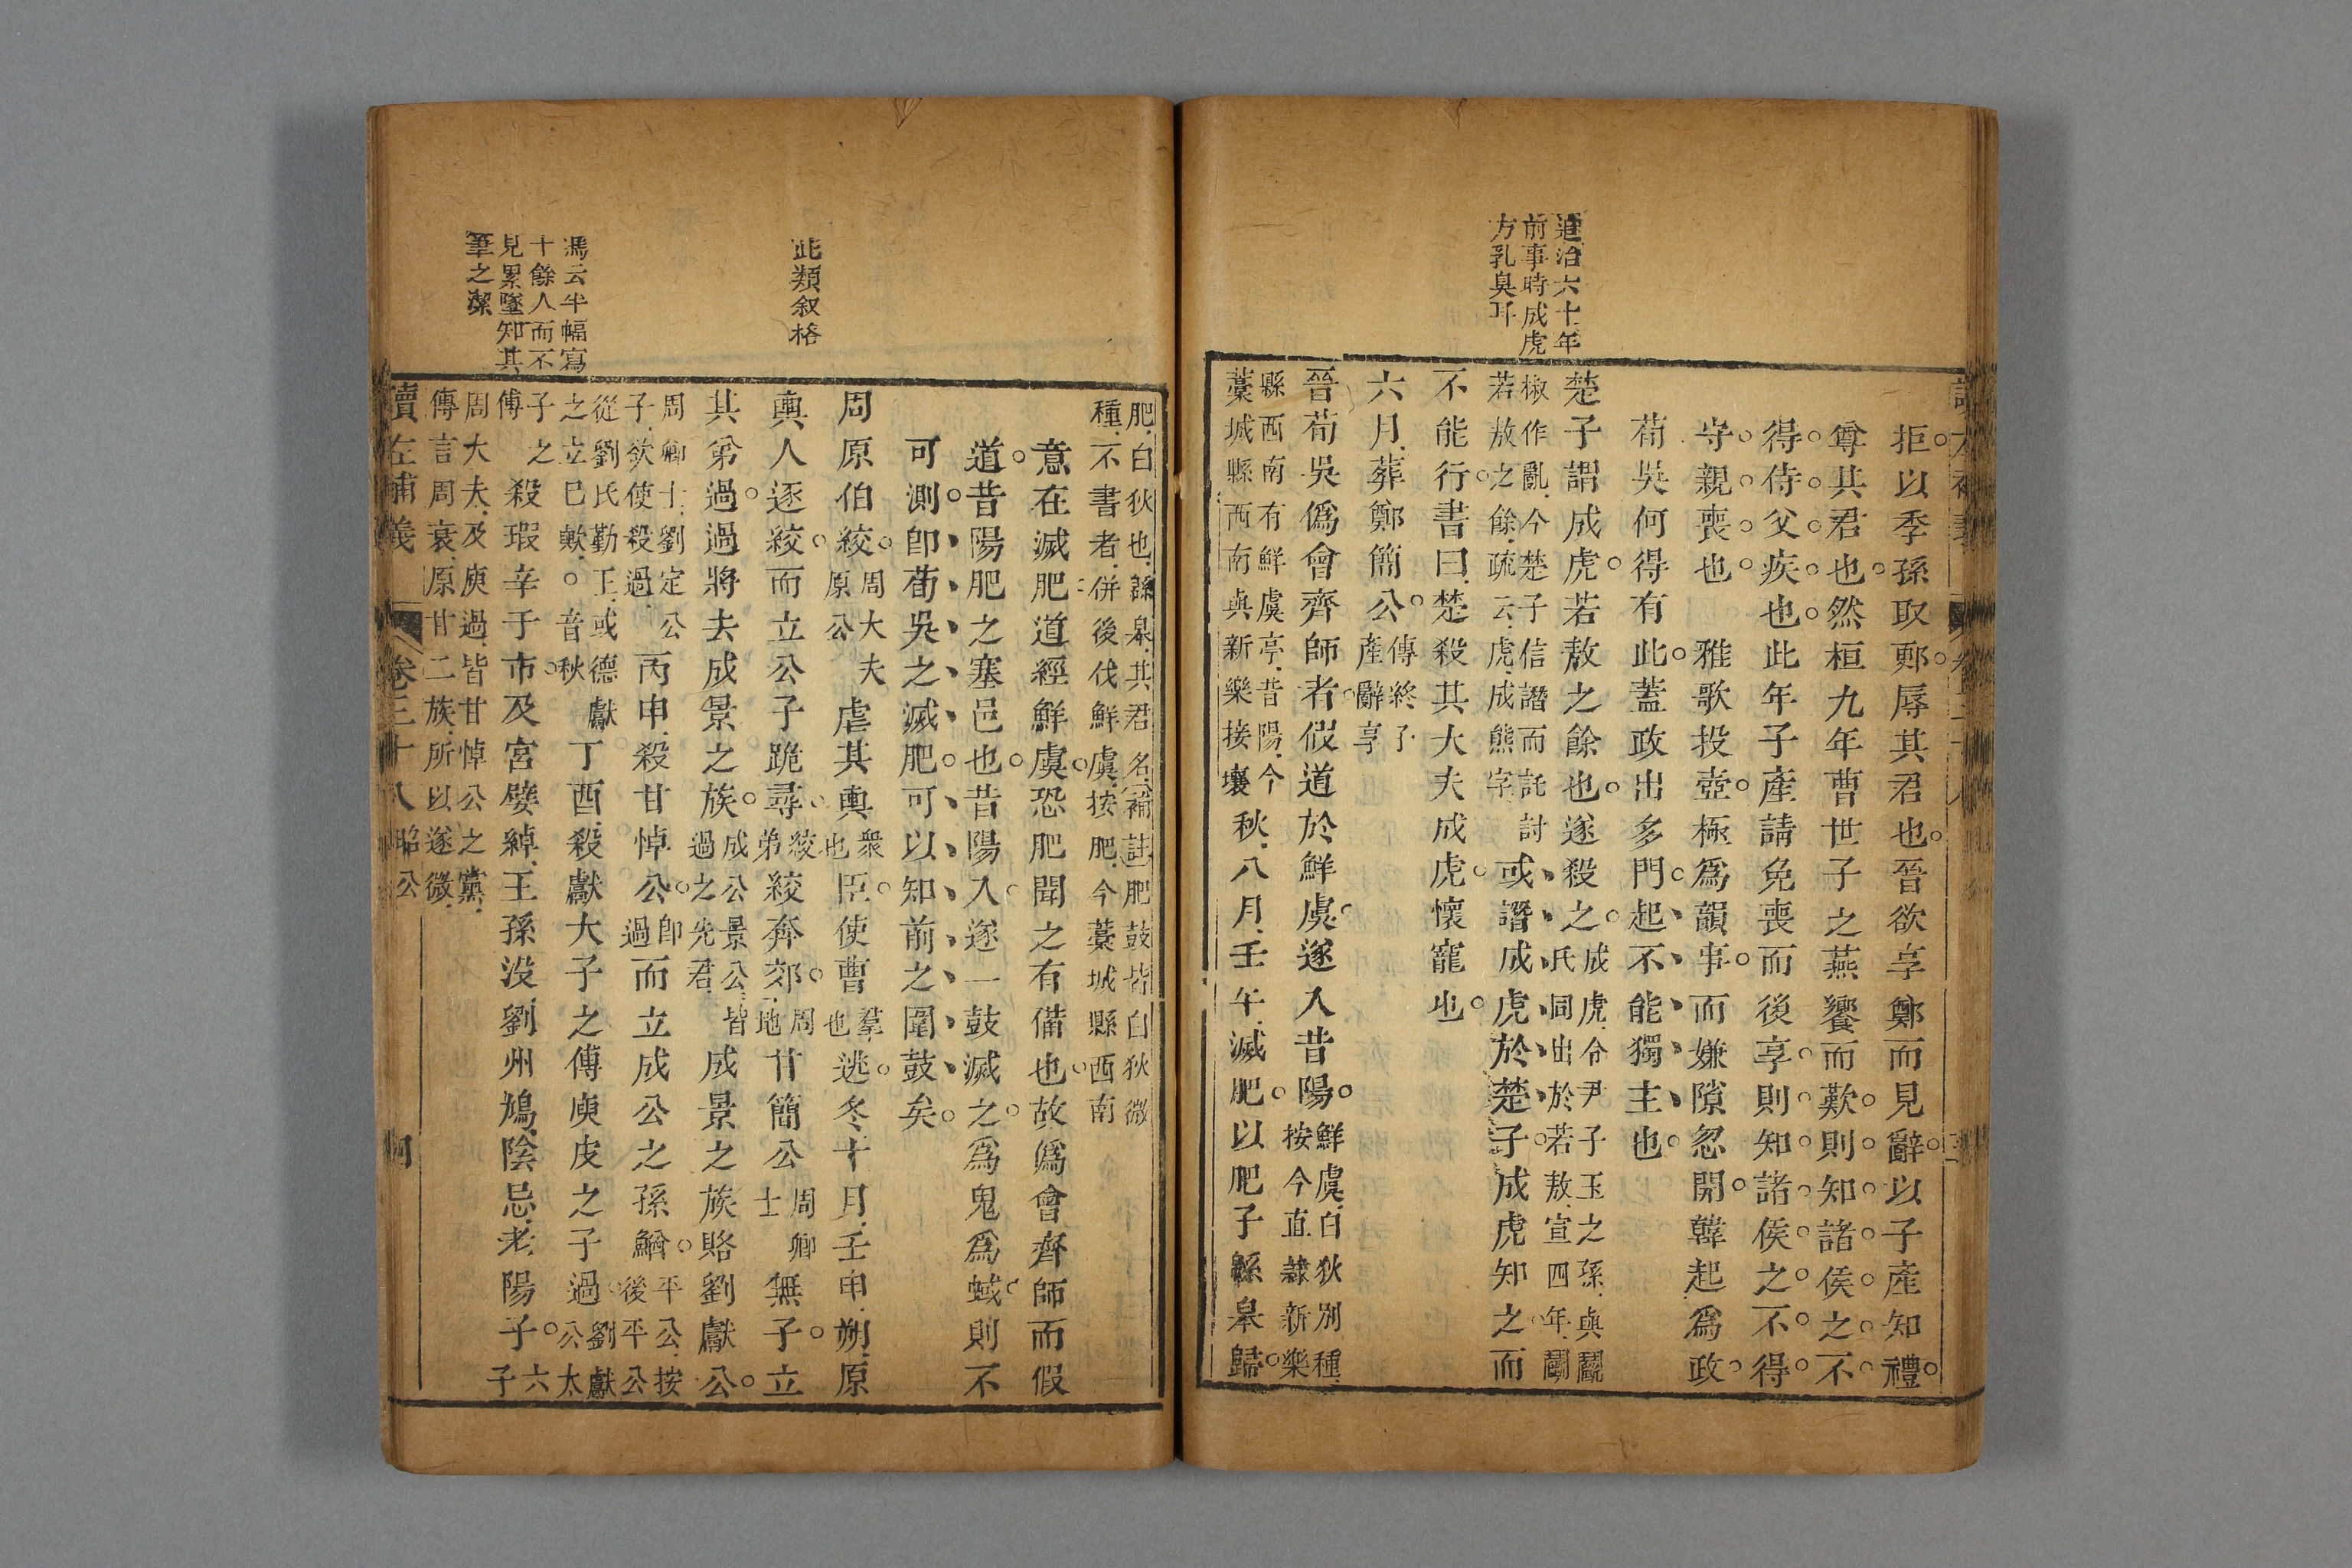 追治六十年
前事時成虎
方乳臭耳
拒以季孫取鄆辱其君也晉欲享鄭而見辭以子產知禮
尊其君也然桓九年曹世子之燕饗而歎則知諸侯之不
得侍父疾也此年子產請免喪而後享則知諸侯之不得
守親喪也 雅歌投壺極爲韻事而嫌隙忽開韓起爲政
荀吳何得有此蓋政出多門起不能獨主也
楚子謂成虎若敖之餘也遂殺之成虎令尹子玉之孫與鬬
氏同出於若敖宣四年鬬
椒作亂今楚子信譖而託討
若敖之餘疏云虎成熊字
或譖成虎於楚子成虎知之而
不能行書曰楚殺其大夫成虎懷寵也
六月葬鄭簡公傳終子
產辭享
晉荀吳僞會齊師者假道於鮮虞遂入昔陽鮮虞白狄別種
按今直隸新樂
縣西南有鮮虞亭昔陽今
藁城縣西南與新樂接壤
秋八月壬午滅肥以肥子緜皋歸
肥白狄也緜皋其君名補註肥鼓皆白狄微
種不書者併後伐鮮虞按肥今藁城縣西南
意在滅肥道經鮮虞恐肥聞之有備也故僞會齊師而假
道昔陽肥之塞邑也昔陽入遂一鼓滅之爲鬼爲蜮則不
可測卽荀吳之滅肥可以知前之圍鼓矣
此類叙格
周原伯絞周大夫
原公
虐其輿衆
也
臣使曹羣
也
逃冬十月壬申朔原
輿人逐絞而立公子跪尋絞
弟
絞奔郊周
地
甘簡公周卿
士
無子立
其弟過過將去成景之族成公景公皆
過之先君
成景之族賂劉獻公
周卿士劉定公
子欲使殺過
丙申殺甘悼公卽
過
而立成公之孫鰌平公按
後平公
從劉氏勤王或德獻
之立巳歟○音秋
丁酉殺獻大子之傅庾皮之子過劉獻
公太
子之
傅
殺瑕辛于市及宮嬖綽王孫沒劉州鳩陰忌老陽子六
子
周大夫及庾過皆甘悼公之黨
傳言周衰原甘二族所以遂微
馮云半幅寫
十餘人而不
見累墜知其
筆之潔
讀左補義 卷三十八 昭公 四